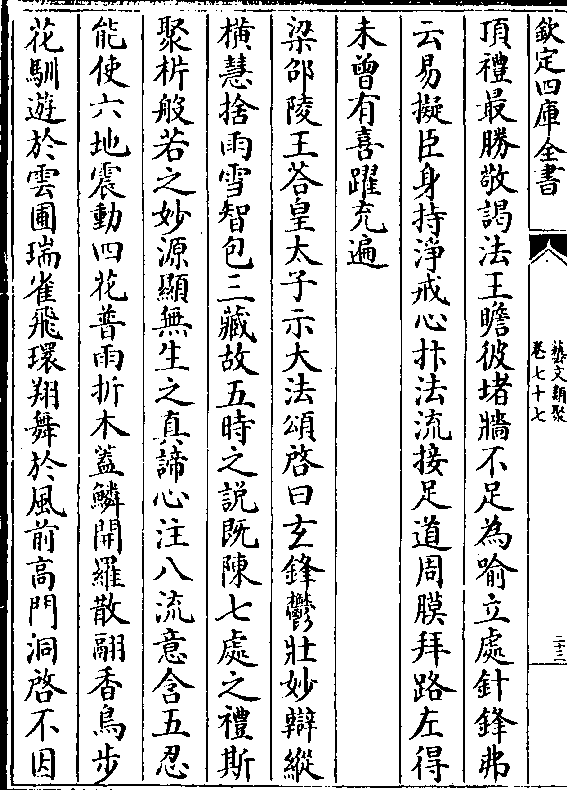 欽定四庫全書
藝文類聚
卷七十七
二十三
頂禮最勝敬謁法王瞻彼堵牆不足為喻立處針鋒弗
云易擬臣身持淨戒心抃法流接足道周膜拜路左得
未曾有喜躍充遍
梁邵陵王荅皇太子示大法頌啓曰玄鋒鬱壯妙辯縱
橫慧捨雨雪智包三藏故五時之説既陳七處之禮斯
聚析般若之妙源顯無生之真諦心注八流意含五忍
能使六地震動四花普雨折木蓋鱗開羅散翮香鳥步
花馴遊於雲圃瑞雀飛環翔舞於風前高門洞啓不因